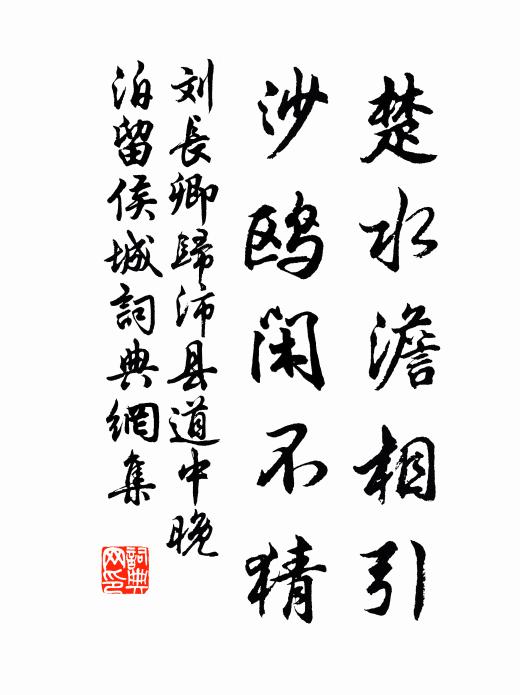 楚水澹相引
沙鸥闲不猜
刘長卿歸沛县道中晚
泊留侯城詞典網集
詞典网印